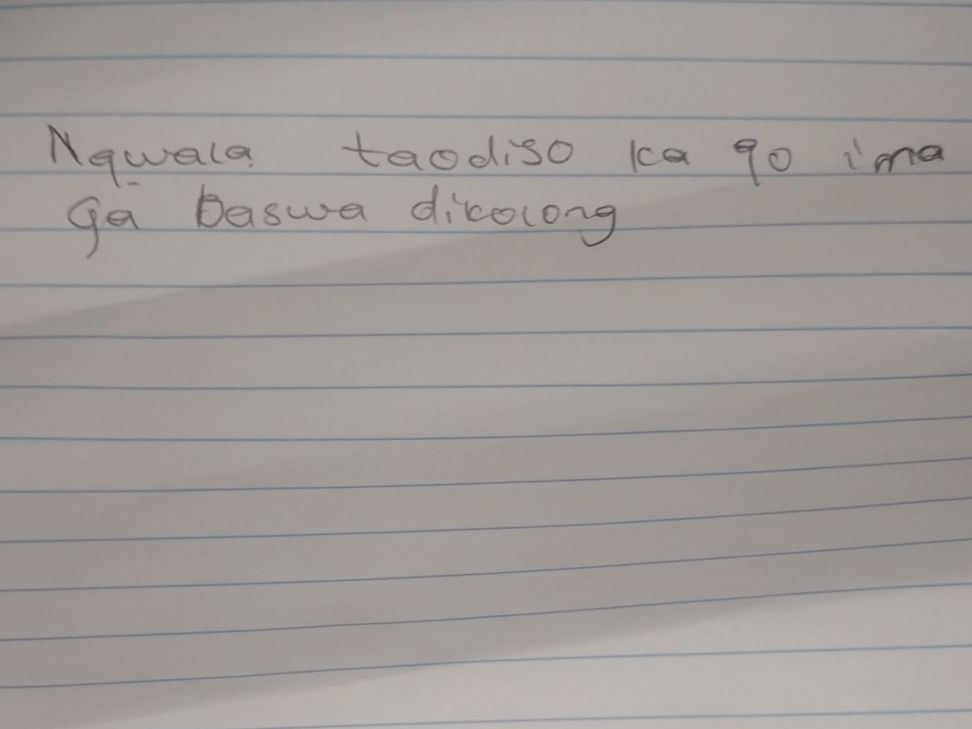 Ngwala taodiso ka go ima
ga baswa dikolong